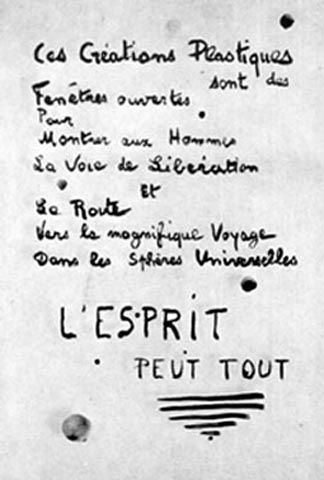 Ces Créations Plastiques
sont des
Fenêtres ouvertes
Pour
Montrer aux Hommes
La Voie de Libération
Et
La Route
Vers la magnifique Voyage
Dans les Sphères Universelles
L'ESPRIT
PEUT TOUT